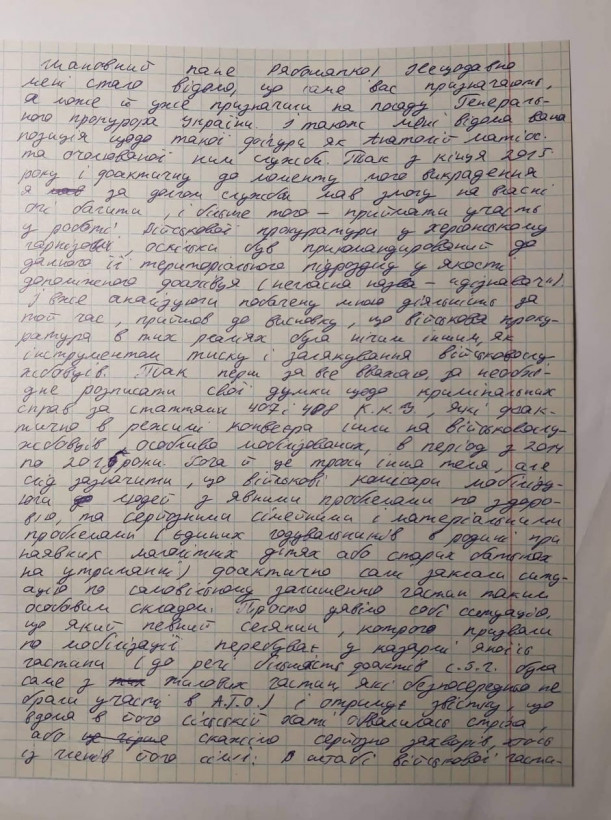 Шановний пане Рябошапко! Нещодавно
мені стало відомо, що саме вас призначають,
а може й уже призначили на посаду Генераль-
ного прокурора України. І також мені відома ваша
позиція щодо такої фігури як Анатолій Матіос
та очолюваної ним служби. Так з кінця 2015
року і фактично до моменту мого викрадення
я за долгом служби мав змогу на власні
очі бачити, і більше того – приймати участь
у роботі Військової прокуратури у Херсонському
гарнізоні, оскільки був прикомандирований до
даного її територіального підрозділу у якості
допоміжного фахівця (негласна назва – дізнавач).
І вже аналізуючи побачену мною діяльність за
той час, прийшов до висновку, що військова проку-
ратура в тих реаліях була нічим іншим, як
інструментом тиску і залякування військовослу-
жбовців. Так перш за все вважаю за необхі-
дне розписати свої думки щодо кримінальних
справ за статтями 407 і 408 К.К.У, які фак-
тично в режимі конвеєра шили на військовослу-
жбовців, особливо мобілізованих, в період з 2014
по 2016 роки. Хоча й це трохи інша тема, але
слід зазначити, що військові комісари мобілізу-
ючи людей з явними проблемами по здоро-
в'ю, та серйозними сімейними і матеріальними
проблемами (єдиних годувальників в родині при
наявних малолітніх дітях або старих батьках
на утриманні) фактично самі заклали ситу-
ацію по самовільному залишенню частин таким
особовим складом. Просто уявіть собі ситуацію,
що який певний селянин, которого призвали
по мобілізації перебуває у казармі якоїсь
частини (до речі більшість фактів с.з.ч. була
саме з тилових частин, які безпосередньо не
брали участі в А.Т.О.) і отримує звістку, що
вдома в його сільській хаті обвалилась стріха,
або скажімо серйозно захворів хтось
із членів його сім'ї. В штабі військової части-